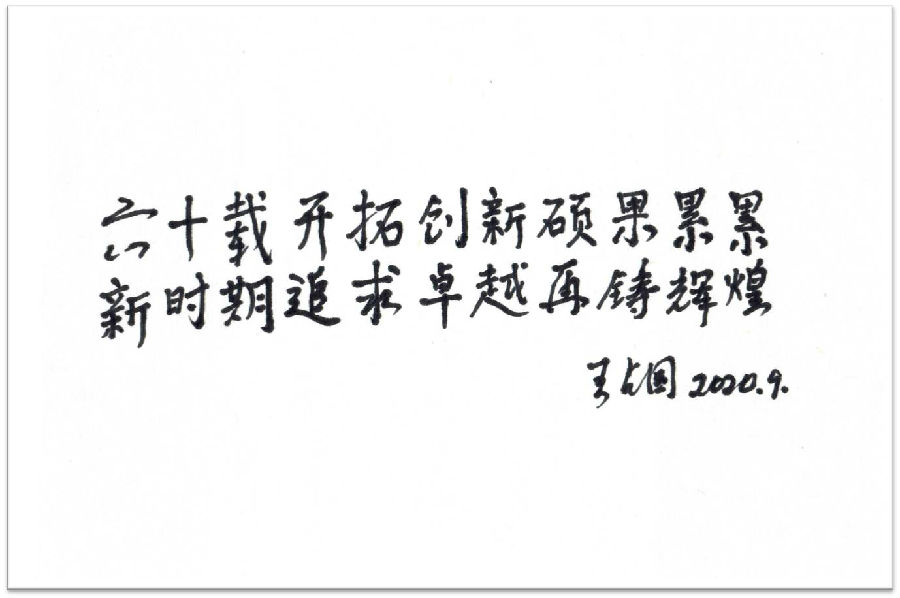 六十载开拓创新硕果累累
新时期追求卓越再铸辉煌
王占国 2020.9.